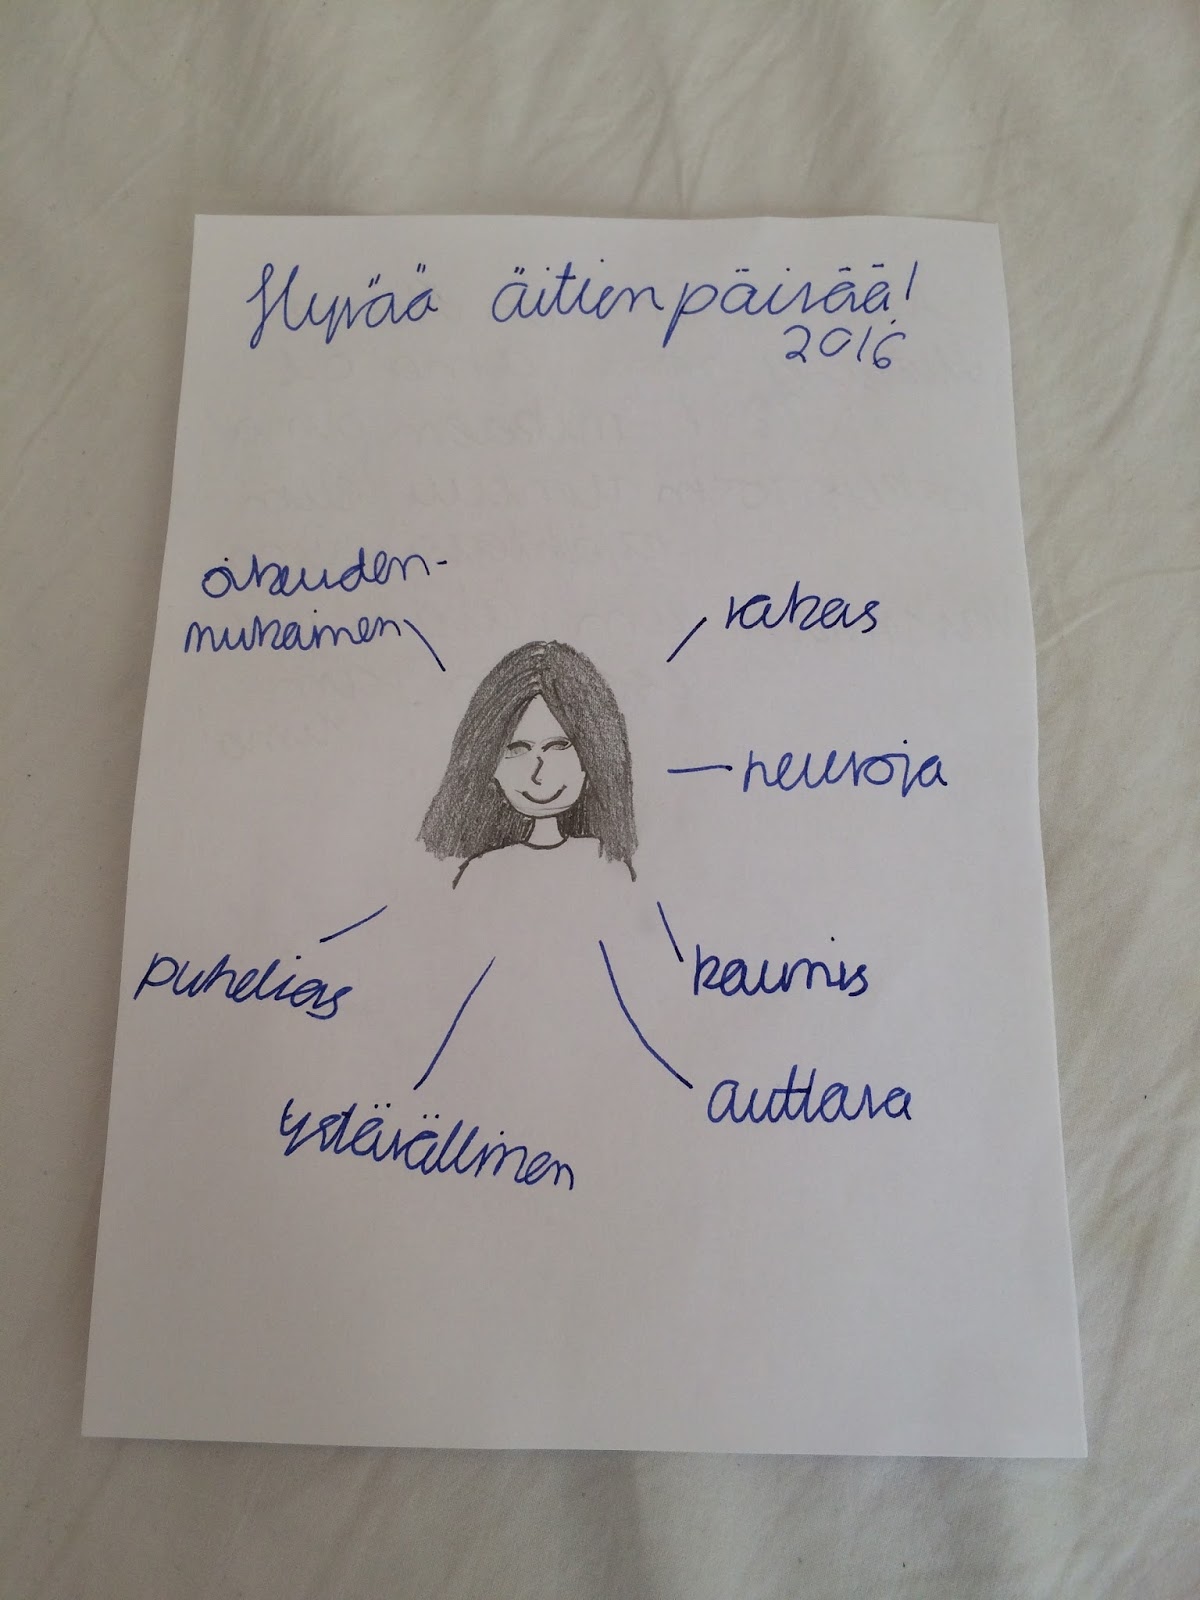 Hyvää äitienpäivää!
2016
oikeuden-
mukainen
rakas
neuvoja
puhelias
kaunis
auttava
ystävällinen